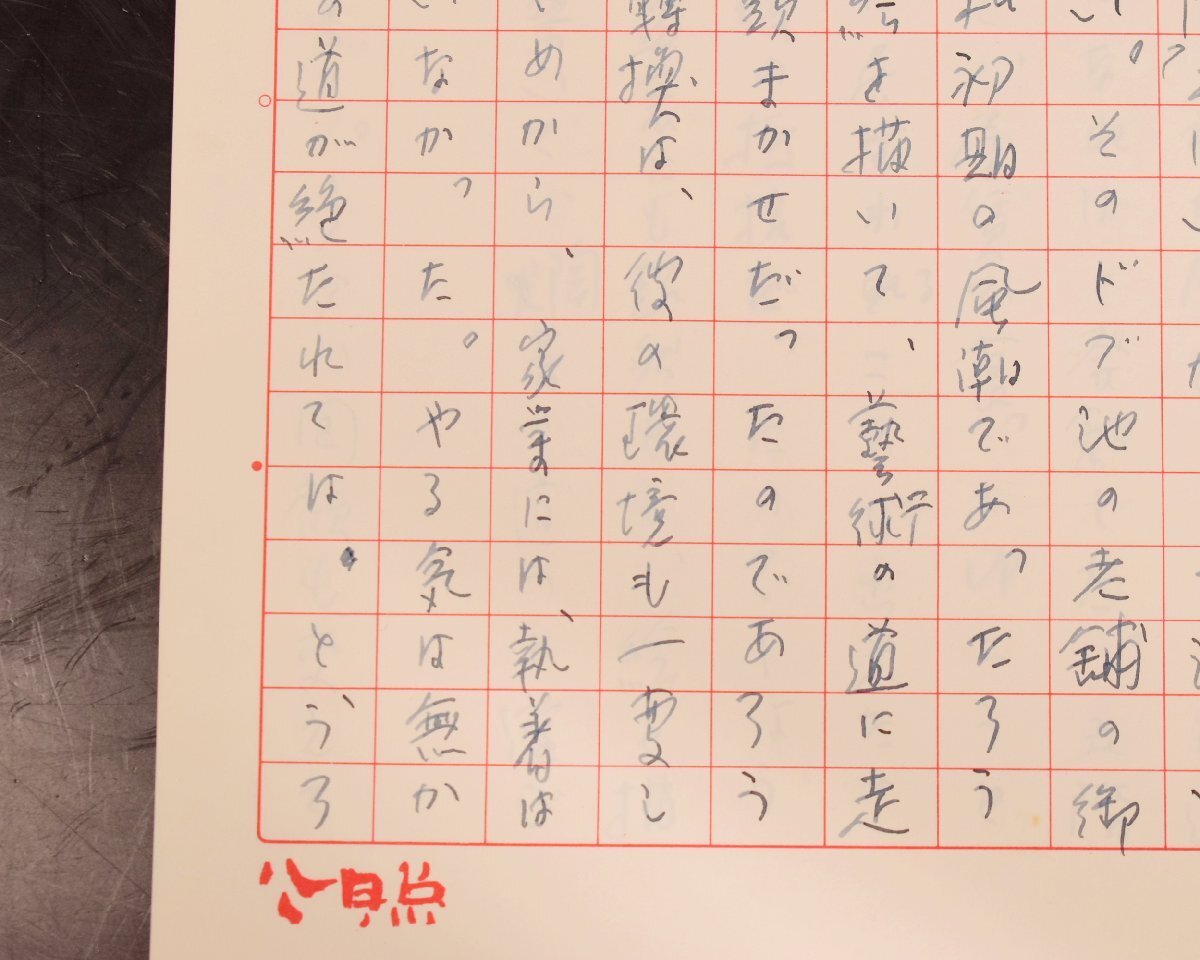 い。そのドブ池の老舗の御
初期の風潮であったろう
絵を描いて、藝術の道に走
まかせだったのであろう
転換は、彼の環境も一変し
めから、家業には、執着は
なかった。やる気は無か
道が絶たれては。どうろ
公点